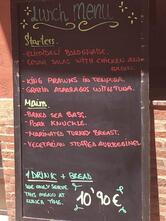 Lunch Menu
Starters
- BOLOGNAISE.
- CESAR SALAD WITH CHICKEN AND
BACON.
- KING PRAWNS IN TEMPURA.
- GREEN ASPARAGUS WITH TUNA.
Main
- BAKED SEA BASS.
- PORK KNUCKLE.
- MARINATED TURKEY BREAST.
- VEGETARIAN STUFFED AUBERGINES.
1 DRINK + BREAD
WE ONLY SERVE
THIS MENU AT
LUNCH TIME.
10'90€